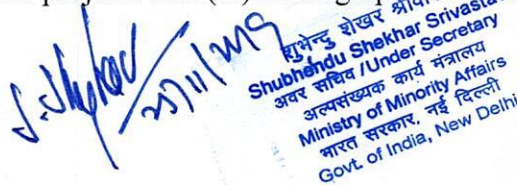 S. Shekhar
शुभेन्दु शेखर
Shubhendu Shekhar Srivasta
अवर सचिव /Under Secretary
अल्पसंख्यक कार्य मंत्रालय
Ministry of Minority Affairs
भारत सरकार, नई दिल्ली
Govt. of India, New Delhi